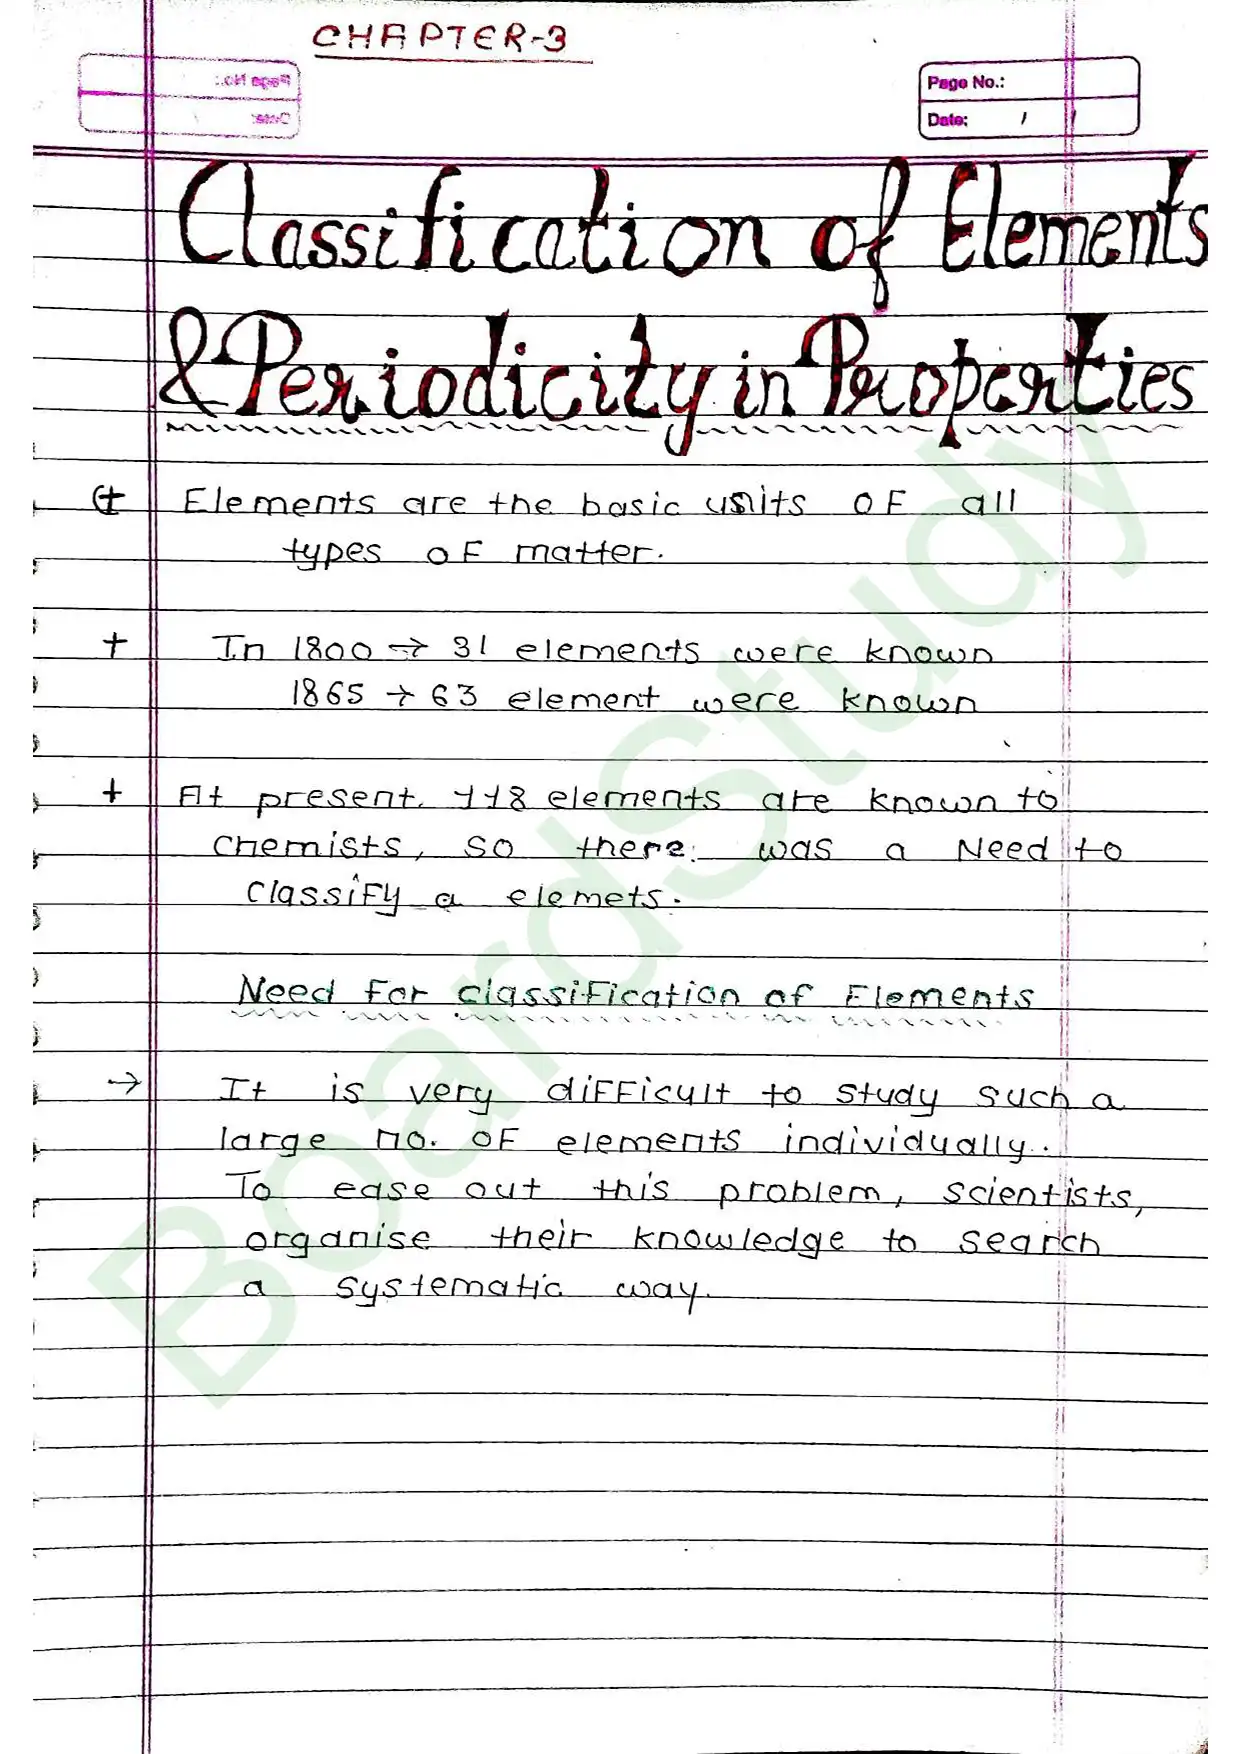 CHAPTER-3
Page No.:
Date: / /
Classification of Elements
& Periodicity in Properties
+ Elements are the basic units of all
types of matter.
+ In 1800 → 31 elements were known
1865 → 63 element were known
+ At present, 118 elements are known to
chemists, so there was a Need to
classify a elemets.
Need for classification of Elements
→ It is very difficult to study such a
large no. of elements individually.
To ease out this problem, scientists,
organise their knowledge to search
a systematic way.
BoardStudy